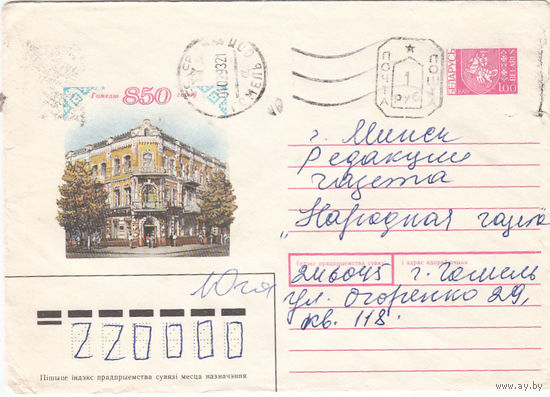 Гомелю 850 гадоў
ГОМЕЛЬ
ПОЧТА
1
РУБ
ПОЧТА
БЕЛАРУСЬ
BELARUS
1.00
г. Минск
Редакция
газета
"Народная газета
Індэкс прадпрыемства сувязі і адрас адпраўшчыка
246045 г. Гомель
ул. Огоренко 29,
кв. 118.
220000
Пішыце індэкс прадпрыемства сувязі месца назначэння
www.ay.by